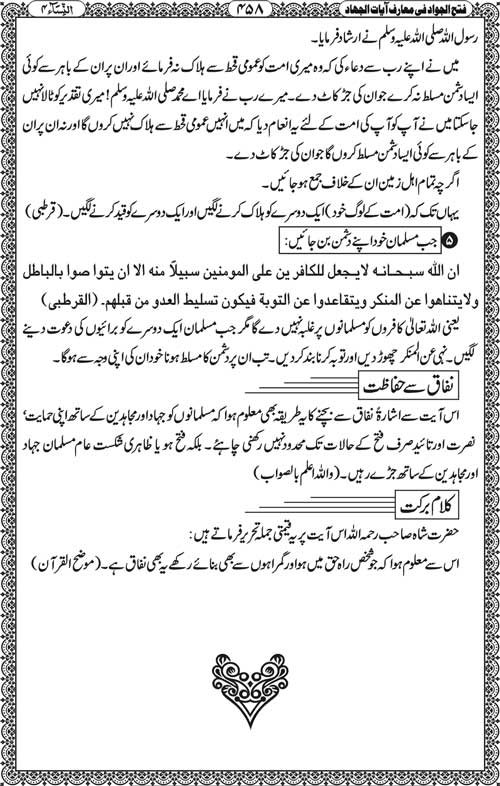 فتح الجواد فی معارف آیات الجهاد
۴۵۸
النِّسَآء ۴
رسول اللہ صلی اللہ علیہ وسلم نے ارشاد فرمایا۔
میں نے اپنے رب سے دعاء کی کہ وہ میری امت کو عمومی قحط سے ہلاک نہ فرمائے اور ان پر ان کے باہر سے کوئی
ایسا دشمن مسلط نہ کرے جو ان کی جڑ کاٹ دے۔ میرے رب نے فرمایا اے محمد صلی اللہ علیہ وسلم! میری تقدیر کو ٹالا نہیں
جا سکتا میں نے آپ کو آپ کی امت کے لئے یہ انعام دیا کہ میں انہیں عمومی قحط سے ہلاک نہیں کروں گا اور نہ ان پر ان
کے باہر سے کوئی ایسا دشمن مسلط کروں گا جو ان کی جڑ کاٹ دے۔
اگرچہ تمام اہل زمین ان کے خلاف جمع ہو جائیں۔
یہاں تک کہ (امت کے لوگ خود) ایک دوسرے کو ہلاک کرنے لگیں اور ایک دوسرے کو قید کرنے لگیں۔ (قرطبی)
۵ جب مسلمان خود اپنے دشمن بن جائیں:
ان الله سبحانه لايجعل للكافرين على المومنين سبيلاً منه الا ان يتوا صوا بالباطل
ولايتناهوا عن المنكر ويتقاعدوا عن التوبة فيكون تسليط العدو من قبلهم۔ (القرطبی)
یعنی اللہ تعالیٰ کافروں کو مسلمانوں پر غلبہ نہیں دے گا مگر جب مسلمان ایک دوسرے کو برائیوں کی دعوت دینے
لگیں۔ نہی عن المنکر چھوڑ دیں اور توبہ کرنا بند کر دیں۔ تب ان پر دشمن کا مسلط ہونا خود ان کی اپنی وجہ سے ہوگا۔
نفاق سے حفاظت
اس آیت سے اشارۃً نفاق سے بچنے کا یہ طریقہ بھی معلوم ہوا کہ مسلمانوں کو جہاد اور مجاہدین کے ساتھ اپنی حمایت،
نصرت اور تائید صرف فتح کے حالات تک محدود نہیں رکھنی چاہئے۔ بلکہ فتح ہو یا ظاہری شکست عام مسلمان جہاد
اور مجاہدین کے ساتھ جڑے رہیں۔ (واللہ اعلم بالصواب)
کلام برکت
حضرت شاہ صاحب رحمہ اللہ اس آیت پر یہ قیمتی جملہ تحریر فرماتے ہیں:
اس سے معلوم ہوا کہ جو شخص راہ حق میں ہو اور گمراہوں سے بھی بنائے رکھے یہ بھی نفاق ہے۔ (موضح القرآن)